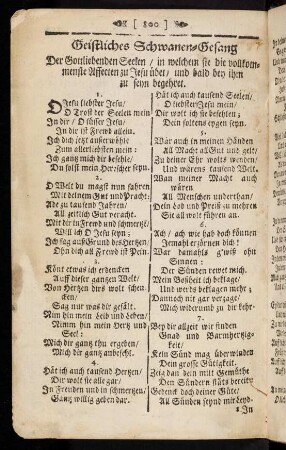 [ 800 ]
Geistliches Schwanen-Gesang
Der Gottliebenden Seelen / in welchem sie die vollkom-
menste Affecten zu Jesu übet / und bald bey ihm
zu seyn begehret.
1.
O Jesu liebster Jesu /
O Trost der Seelen mein
In dir / O süsser Jesu /
In dir ist Frewd allein.
Ich dich jetzt außerwöhle
Zum allerliebsten mein:
Ich gantz mich dir befehle /
Du solst mein Herscher seyn.
2.
O Welt du magst nun fahren
Mit deinem Gut und Pracht:
Ade zu tausend Jahren /
All zeitlich Gut veracht.
Mit dir in Frewd und schmertzē /
Will ich O Jesu seyn:
Ich sag auß Grund des Hertzen /
Ohn dich all Frewd ist Pein.
3.
Könt etwas ich erdencken
Auff dieser gantzen Welt /
Von Hertzen dirs wolt schen-
cken /
Sag nur was dir gefält.
Nim hin mein Leib und Leben /
Nimm hin mein Hertz und
Seel:
Mich dir gantz thu ergeben /
Mich dir gantz anbefehl.
4.
Hät ich auch tausend Hertzen /
Dir wolt sie alle gar /
In Freuden und in schmertzen /
Gantz willig geben dar.
Hät ich auch tausend Seelen /
O liebster Jesu mein /
Dir wolt ich sie befehlen /
Dein soltens eygen seyn.
5.
Wär auch in meinen Händen
All Macht all Gut und gelt /
Zu deiner Ehr wolts wenden /
Und wärens tausend Welt.
Wan meiner Macht auch
wären
All Menschen underthan /
Dein Lob und Preiß zu mehren
Sie all wolt führen an.
6.
Ach / ach wie hab doch können
Jemahl erzörnen dich?
War damahls g'wiß ohn
Sinnen:
Der Sünden rewet mich.
Mein Boßheit ich beklage
Und werds beklagen mehr;
Dannoch nit gar verzage /
Mich widerumb zu dir beker.
7.
Bey dir allzeit wir finden
Gnad und Barmhertzig-
keit /
Kein Sünd mag überwinden
Dein grosse Gütigkeit.
Zeig dan dein milt Gemüthe
Den Sündern stäts bereit /
Gedenck doch deiner Güte /
All Sünden seynd mir Leyd.
8 In